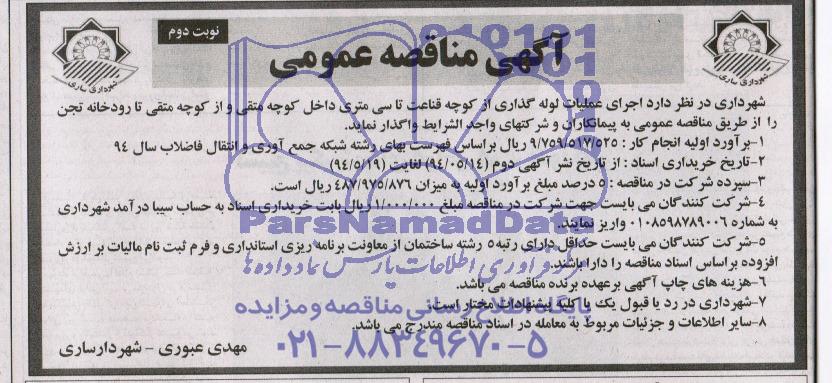 نوبت دوم
آگهی مناقصه عمومی
شهرداری ساری
شهرداری ساری
شهرداری در نظر دارد اجرای عملیات لوله گذاری از کوچه قناعت تا سی متری داخل کوچه متقی و از کوچه متقی تا رودخانه تجن
را از طریق مناقصه عمومی به پیمانکاران و شرکتهای واجد الشرایط واگذار نماید.
۱-برآورد اولیه انجام کار : ۹/۷۵۹/۵۱۷/۵۲۵ ریال براساس فهرست بهای رشته شبکه جمع آوری و انتقال فاضلاب سال ۹۴
۲-تاریخ خریداری اسناد : از تاریخ نشر آگهی دوم (۹۴/۰۵/۱۴) لغایت (۹۴/۵/۱۹)
۳-سپرده شرکت در مناقصه : ۵ درصد مبلغ برآورد اولیه به میزان ۴۸۷/۹۷۵/۸۷۶ ریال است.
۴-شرکت کنندگان می بایست جهت شرکت در مناقصه مبلغ ۱/۰۰۰/۰۰۰ریال بابت خریداری اسناد به حساب سیبا درآمد شهرداری
به شماره ۰۱۰۸۵۹۸۷۸۹۰۰۶ واریز نمایند.
۵-شرکت کنندگان می بایست حداقل دارای رتبه ۵ رشته ساختمان از معاونت برنامه ریزی استانداری و فرم ثبت نام مالیات بر ارزش
افزوده براساس اسناد مناقصه را دارا باشند.
۶-هزینه های چاپ آگهی برعهده برنده مناقصه می باشد.
۷-شهرداری در رد یا قبول یک یا کلیه پیشنهادات مختار است.
۸-سایر اطلاعات و جزئیات مربوط به معامله در اسناد مناقصه مندرج می باشد.
مهدی عبوری - شهردار ساری
ParsNamadData
فرآوری اطلاعات پارس نماد داده ها
پایگاه اطلاع رسانی مناقصه و مزایده
۰۲۱-۸۸۳۴۹۶۷۰-۵